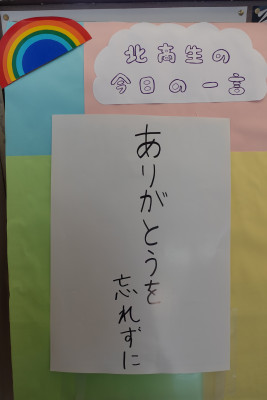 北高生の
今日の一言
ありがとうを
忘れずに